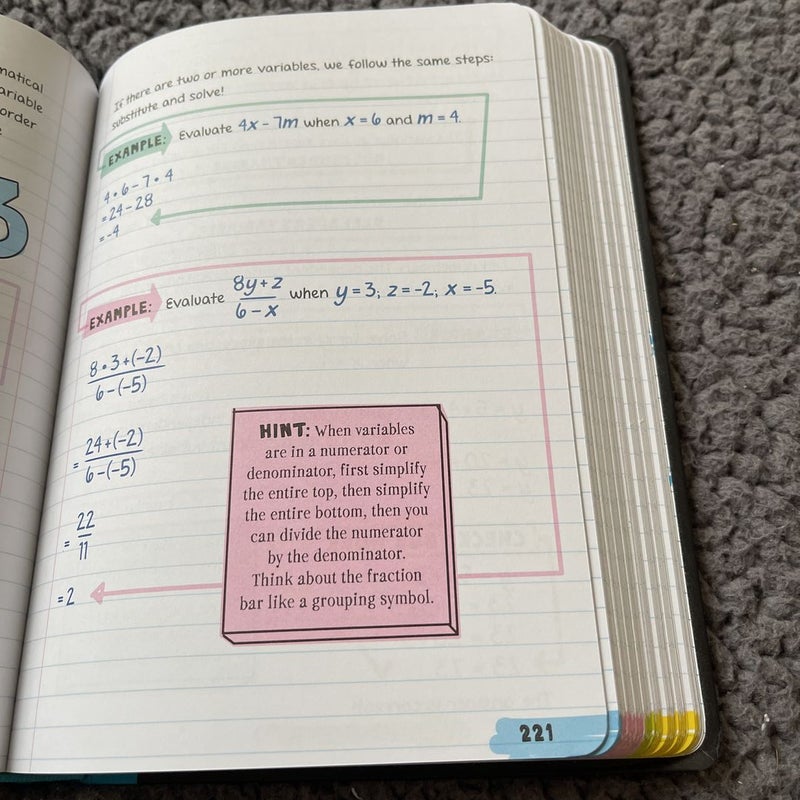 matical
ariable
order
3
If there are two or more variables, we follow the same steps:
substitute and solve!
EXAMPLE: Evaluate 4x - 7m when x = 6 and m = 4.
4 • 6 - 7 • 4
= 24 - 28
= -4
EXAMPLE: Evaluate (8y + z)/(6 - x) when y = 3, z = -2, x = -5.
8 • 3 + (-2)
6 - (-5)
= 24 + (-2)
6 - (-5)
= 22
11
= 2
HINT: When variables
are in a numerator or
denominator, first simplify
the entire top, then simplify
the entire bottom, then you
can divide the numerator
by the denominator.
Think about the fraction
bar like a grouping symbol.
221